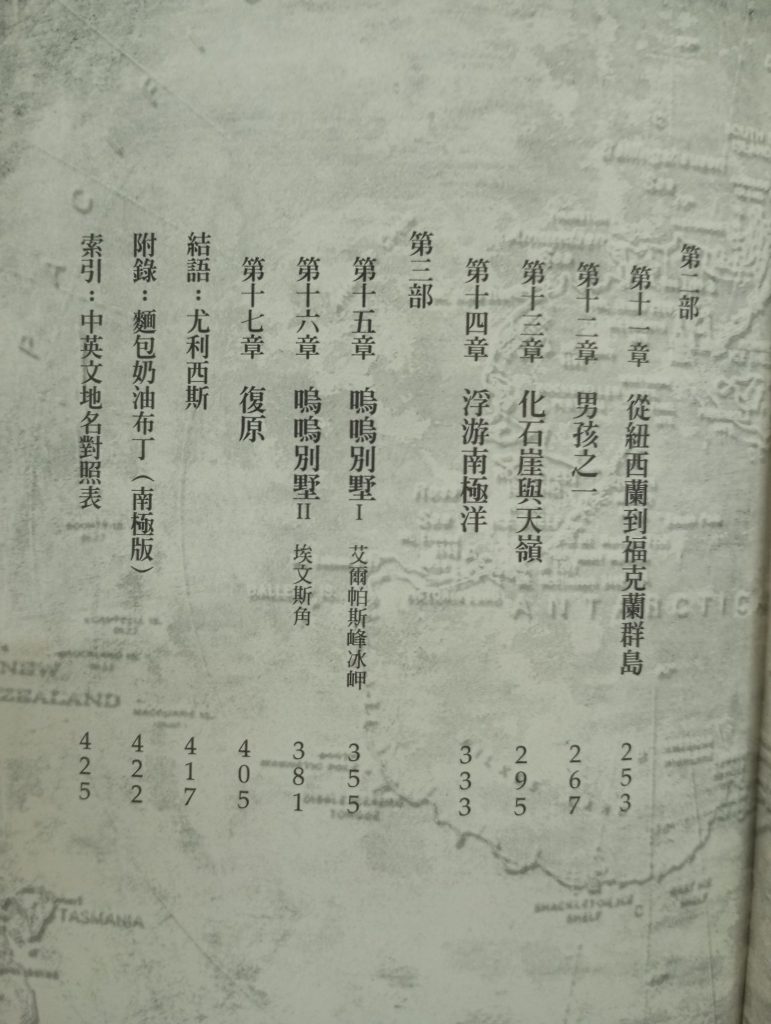 第二部
第十一章 從紐西蘭到福克蘭群島 253
第十二章 男孩之一 267
第十三章 化石崖與天嶺 295
第十四章 浮游南極洋 333
第三部
第十五章 嗚嗚別墅I 艾爾帕斯峰冰岬 355
第十六章 嗚嗚別墅II 埃文斯角 381
第十七章 復原 405
結語：尤利西斯 417
附錄：麵包奶油布丁（南極版） 422
索引：中英文地名對照表 425
NEW
ZEALAND
TASMANIA
SHACKLETON ICE
SHELF